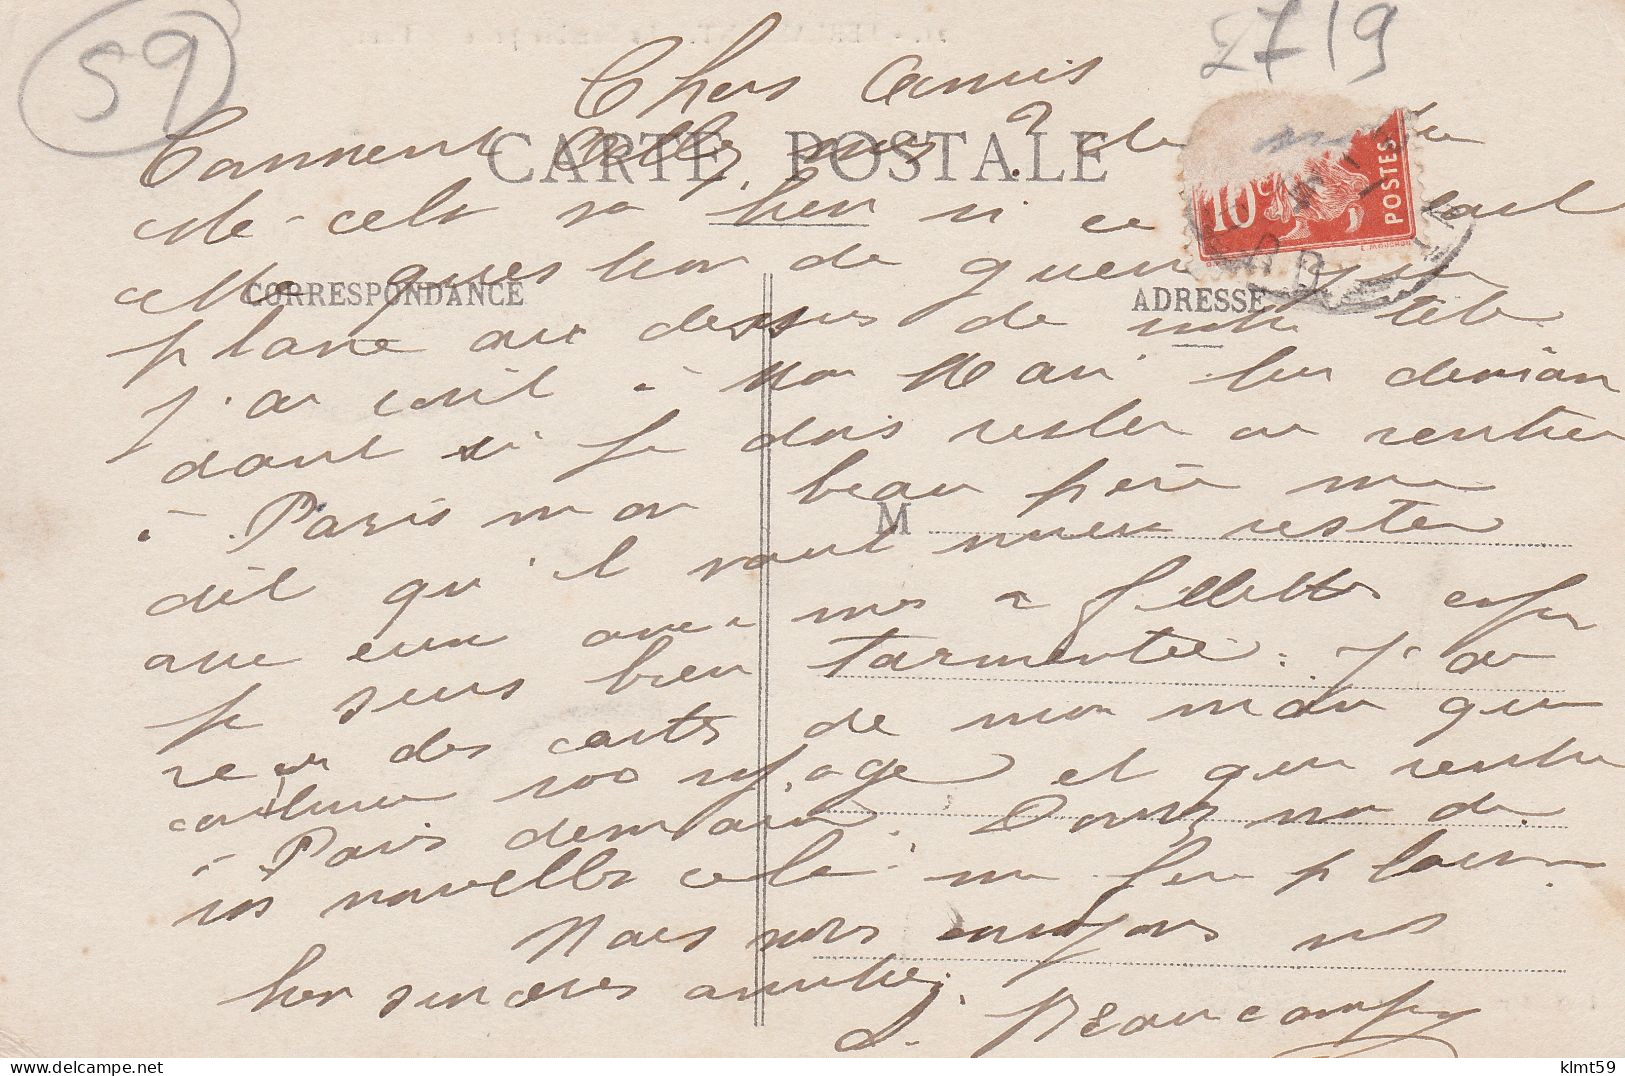 59
2719
Chers Amis
CARTE POSTALE
Comment allez vous ? de
cela va bien si ce
question de guerre
10c POSTES
CORRESPONDANCE
ADRESSE
plane au dessus de notre tête
j'ai écrit à Mon Mari lui deman
dant si je dois rester ou rentrer
à Paris mon beau père me
M
dit qu'il vaut mieux rester
avec eux avec mes 2 fillettes enfin
je suis bien tarmentée. J'ai
reçu des cartes de mon mari qui
continue son voyage et qui rentre
à Paris demain. Donnez moi de
vos nouvelles cela me fera plaisir
Nous vous envoyons nos
bien sincères amitiés.
Beaucamp
klmt59